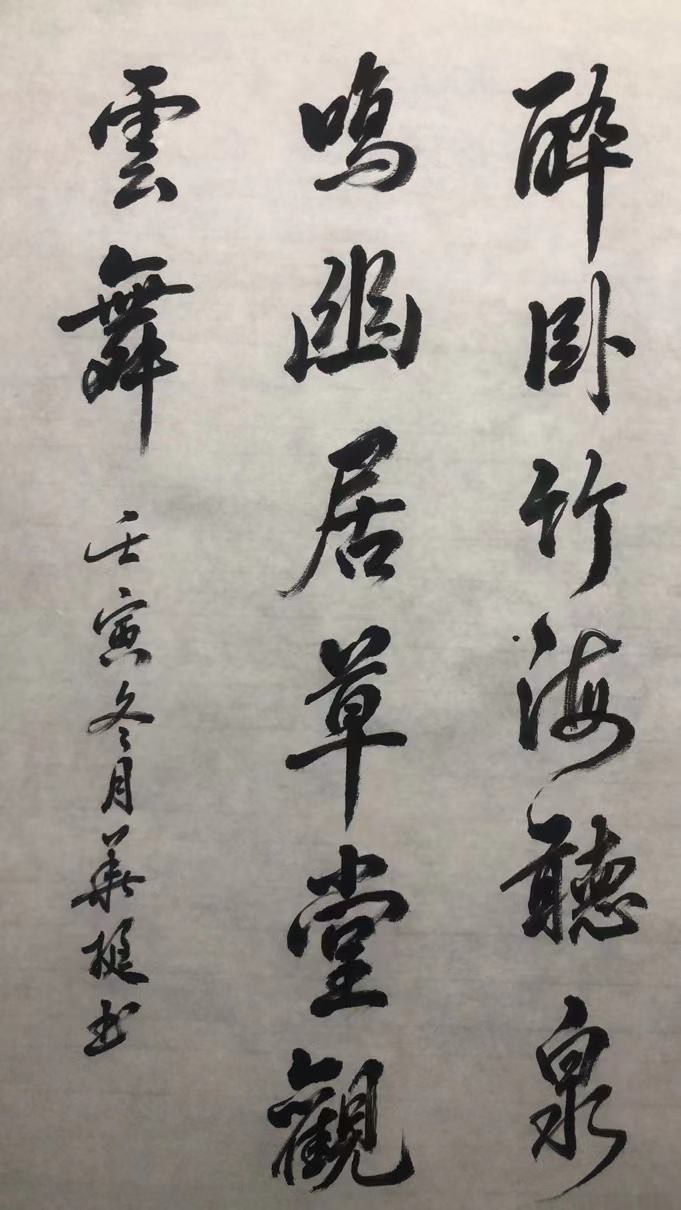 醉卧竹海聽泉
鳴幽居草堂觀
雲舞
壬寅冬月華梃书